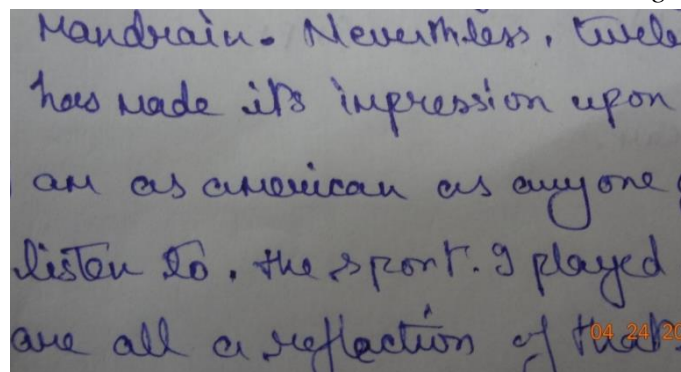 Mandrain. Nevertheless, twele
has made its impression upon
am as american as anyone
listen to, the sport. I played
are all a reflection of that.
04 24 20